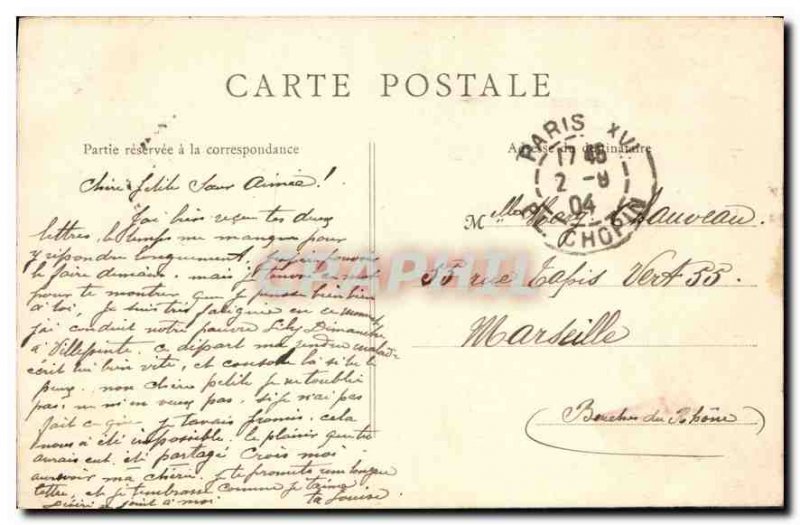 CARTE POSTALE
Partie réservée à la correspondance
Adresse du destinataire
PARIS XVI
17 45
2 -9
04
PL. CHOPIN
Chère petite Sœur Aimée!
J'ai bien reçu tes deux
lettres, le temps me manque pour
y répondre longuement,
le faire demain, mais je
pour te montrer que je pense bien bien
à toi, je suis très fatiguée en ce moment
j'ai conduit notre pauvre Lily Dimanche
à Villepinte. ce départ m'a rendue malade
écris lui bien vite, et console là si tu le
peux. non chère petite je ne t'oublie
pas, ne m'en veux pas, si je n'ai pas
fait ce que je t'avais promis. cela
nous a été impossible. le plaisir que tu
aurais eut, été partagé Crois moi
aurevoir ma chérie, je te promets une longue
lettre, et je t'embrasse comme je t'aime
ta Louise
M
Chauveau
55 rue Tapis Vert 55.
Marseille
(Bouches du Rhône)
CPAPHIL